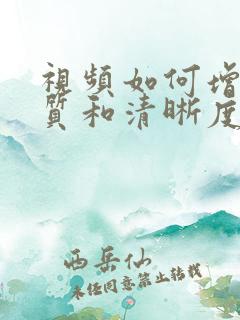 視頻如何增
質和清晰度
西岳仙
未經同意禁止轉載